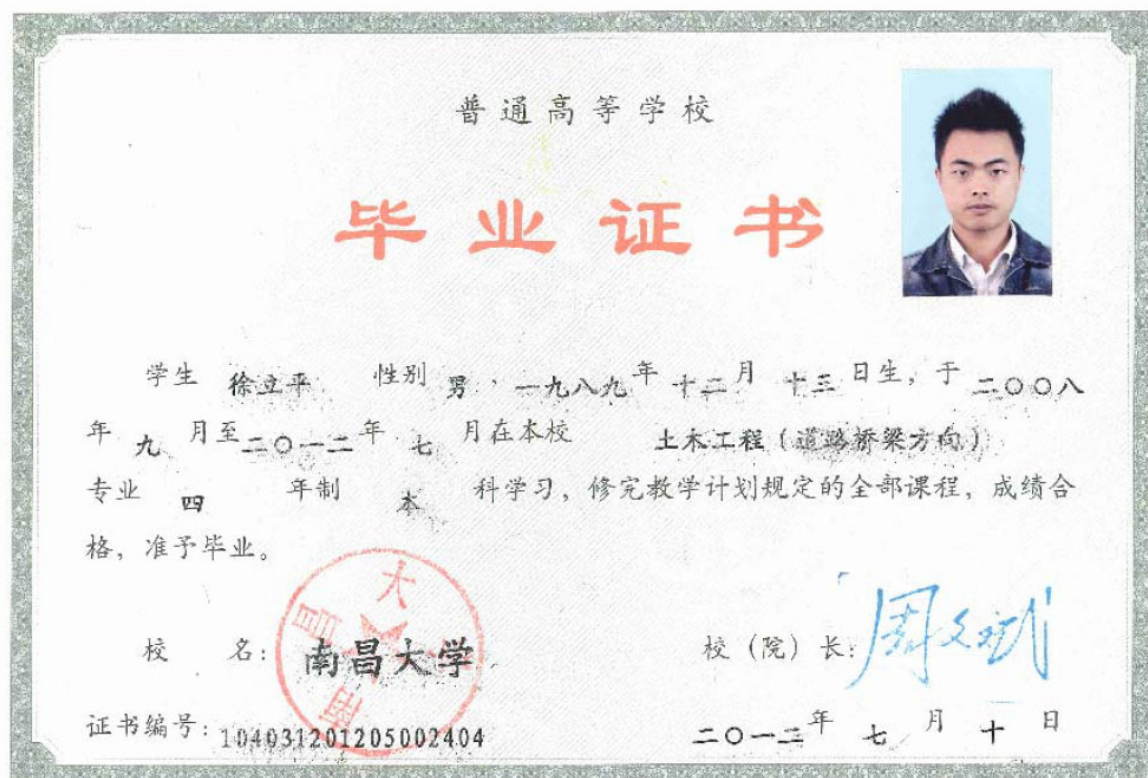 普通高等学校
毕业证书
学生 徐立平 性别 男，一九八九年 十二月 十三日生，于 二〇〇八
年 九 月至二〇一二年 七 月在本校 土木工程（道路桥梁方向）
专业 四 年制 本 科学习，修完教学计划规定的全部课程，成绩合
格，准予毕业。
南昌大学
校 名：南昌大学 校（院）长：周文斌
证书编号：104031201205002404 二〇一二年 七 月 十 日